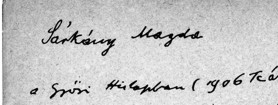 Sárkány Magda
a Győri Hirlapban (1906